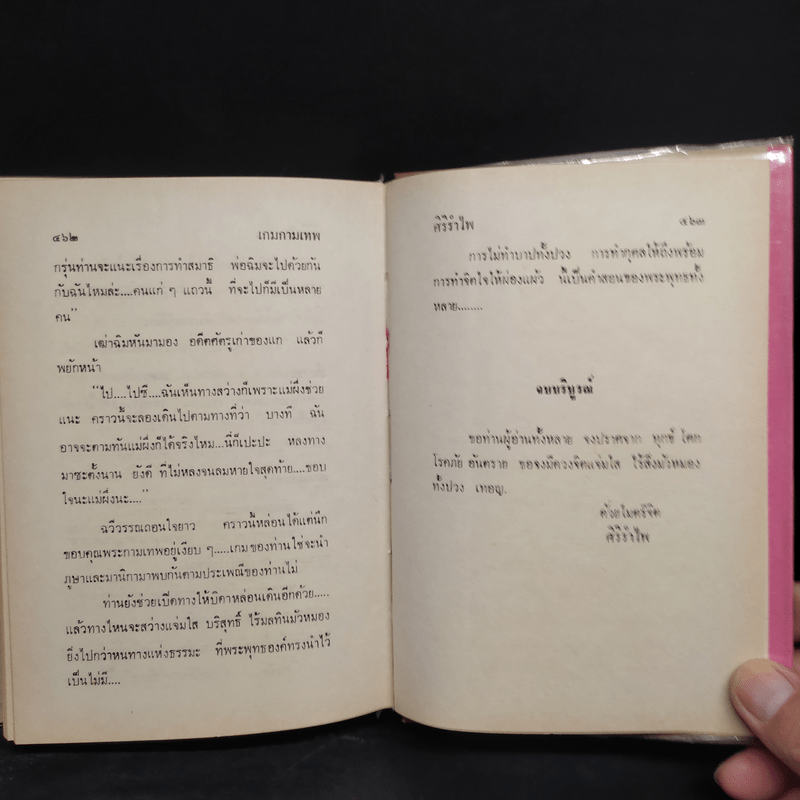 ๔๖๒ เกมกามเทพ
กรุ่นท่านจะแนะเรื่องการทำสมาธิ พ่อฉิมจะไปด้วยกัน
กับฉันไหมล่ะ....คนแก่ ๆ แถวนี้ ที่จะไปก็มีเป็นหลาย
คน”
เฒ่าฉิมหันมามอง อดีตศัตรูเก่าของแก แล้วก็
พยักหน้า
“ไป....ไปซี....ฉันเห็นทางสว่างก็เพราะแม่ผึ่งช่วย
แนะ คราวนี้จะลองเดินไปตามทางที่ว่า บางที ฉัน
อาจจะตามทันแม่ผึ่งก็ได้จริงไหม...นี่ก็เปะปะ หลงทาง
มาซะตั้งนาน ยังดี ที่ไม่หลงจนลมหายใจสุดท้าย....ขอบ
ใจนะแม่ผึ่งนะ....”
ฉวีวรรณถอนใจยาว คราวนี้หล่อนได้แต่นึก
ขอบคุณพระกามเทพอยู่เงียบ ๆ.....เกมของท่านใช่จะนำ
ภูษาและมานิกามาพบกันตามประเพณีของท่านไม่
ท่านยังช่วยเปิดทางให้บิดาหล่อนเดินอีกด้วย.....
แล้วทางไหนจะสว่างแจ่มใส บริสุทธิ์ ไร้มลทินมัวหมอง
ยิ่งไปกว่าหนทางแห่งธรรมะ ที่พระพุทธองค์ทรงนำไว้
เป็นไม่มี....
ศิริรำไพ ๔๖๓
การไม่ทำบาปทั้งปวง การทำกุศลให้ถึงพร้อม
การทำจิตใจให้ผ่องแผ้ว นี้เป็นคำสอนของพระพุทธทั้ง
หลาย........
จบบริบูรณ์
ขอท่านผู้อ่านทั้งหลาย จงปราศจาก ทุกข์ โศก
โรคภัย อันตราย ขอจงมีดวงจิตแจ่มใส ไร้สิ่งมัวหมอง
ทั้งปวง เทอญ.
ด้วยไมตรีจิต
ศิริรำไพ